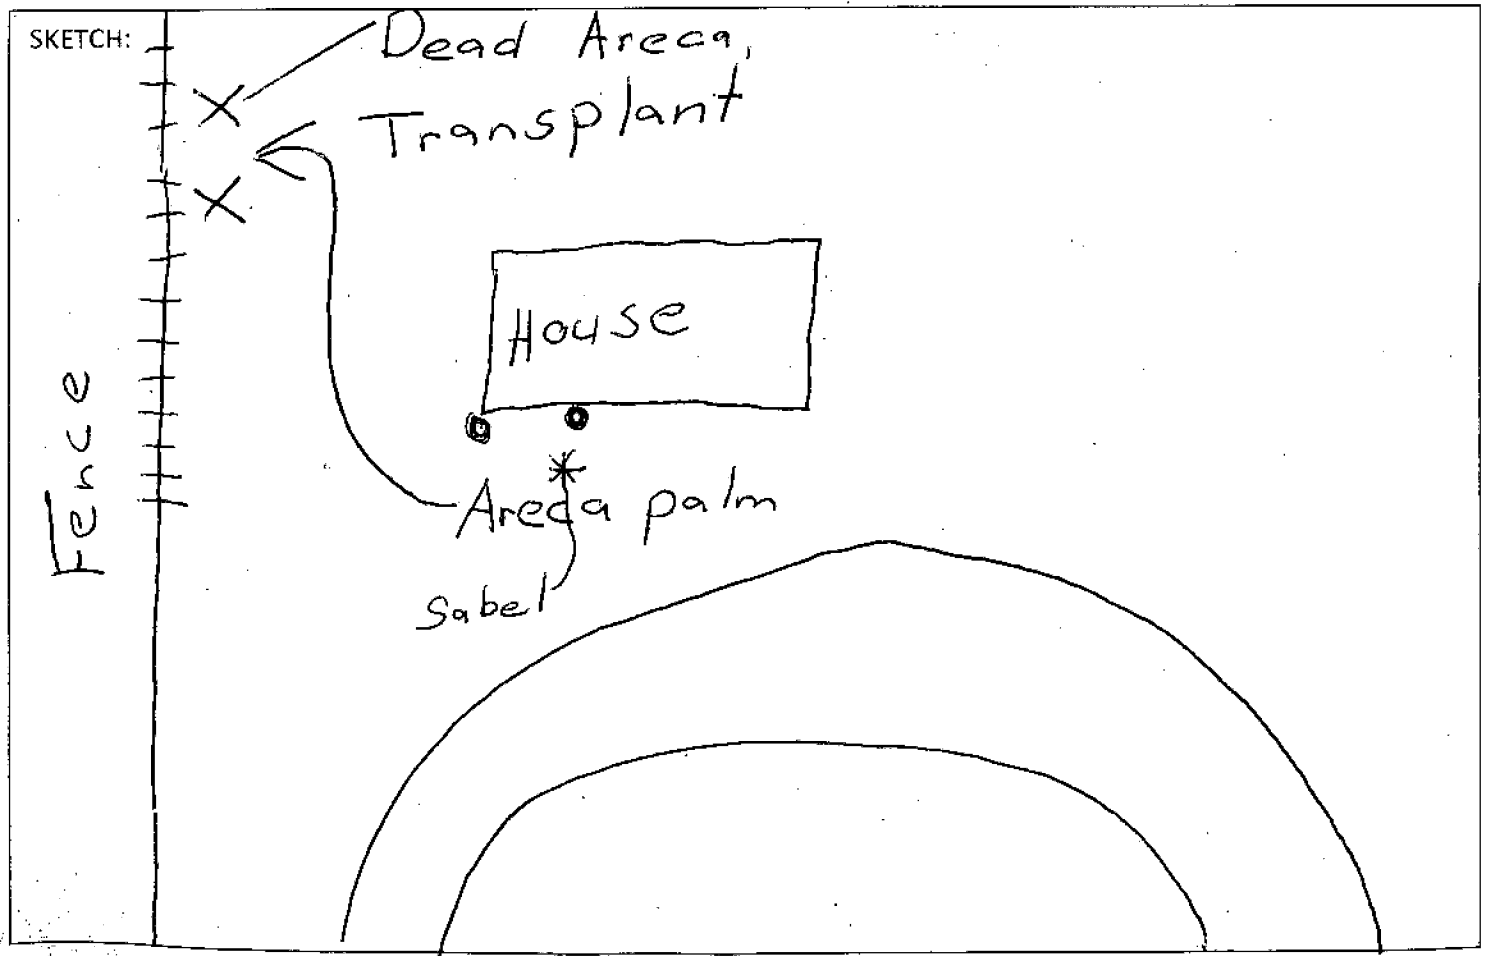 SKETCH:
Dead Areca,
Transplant
House
Fence
Areca palm
Sabel